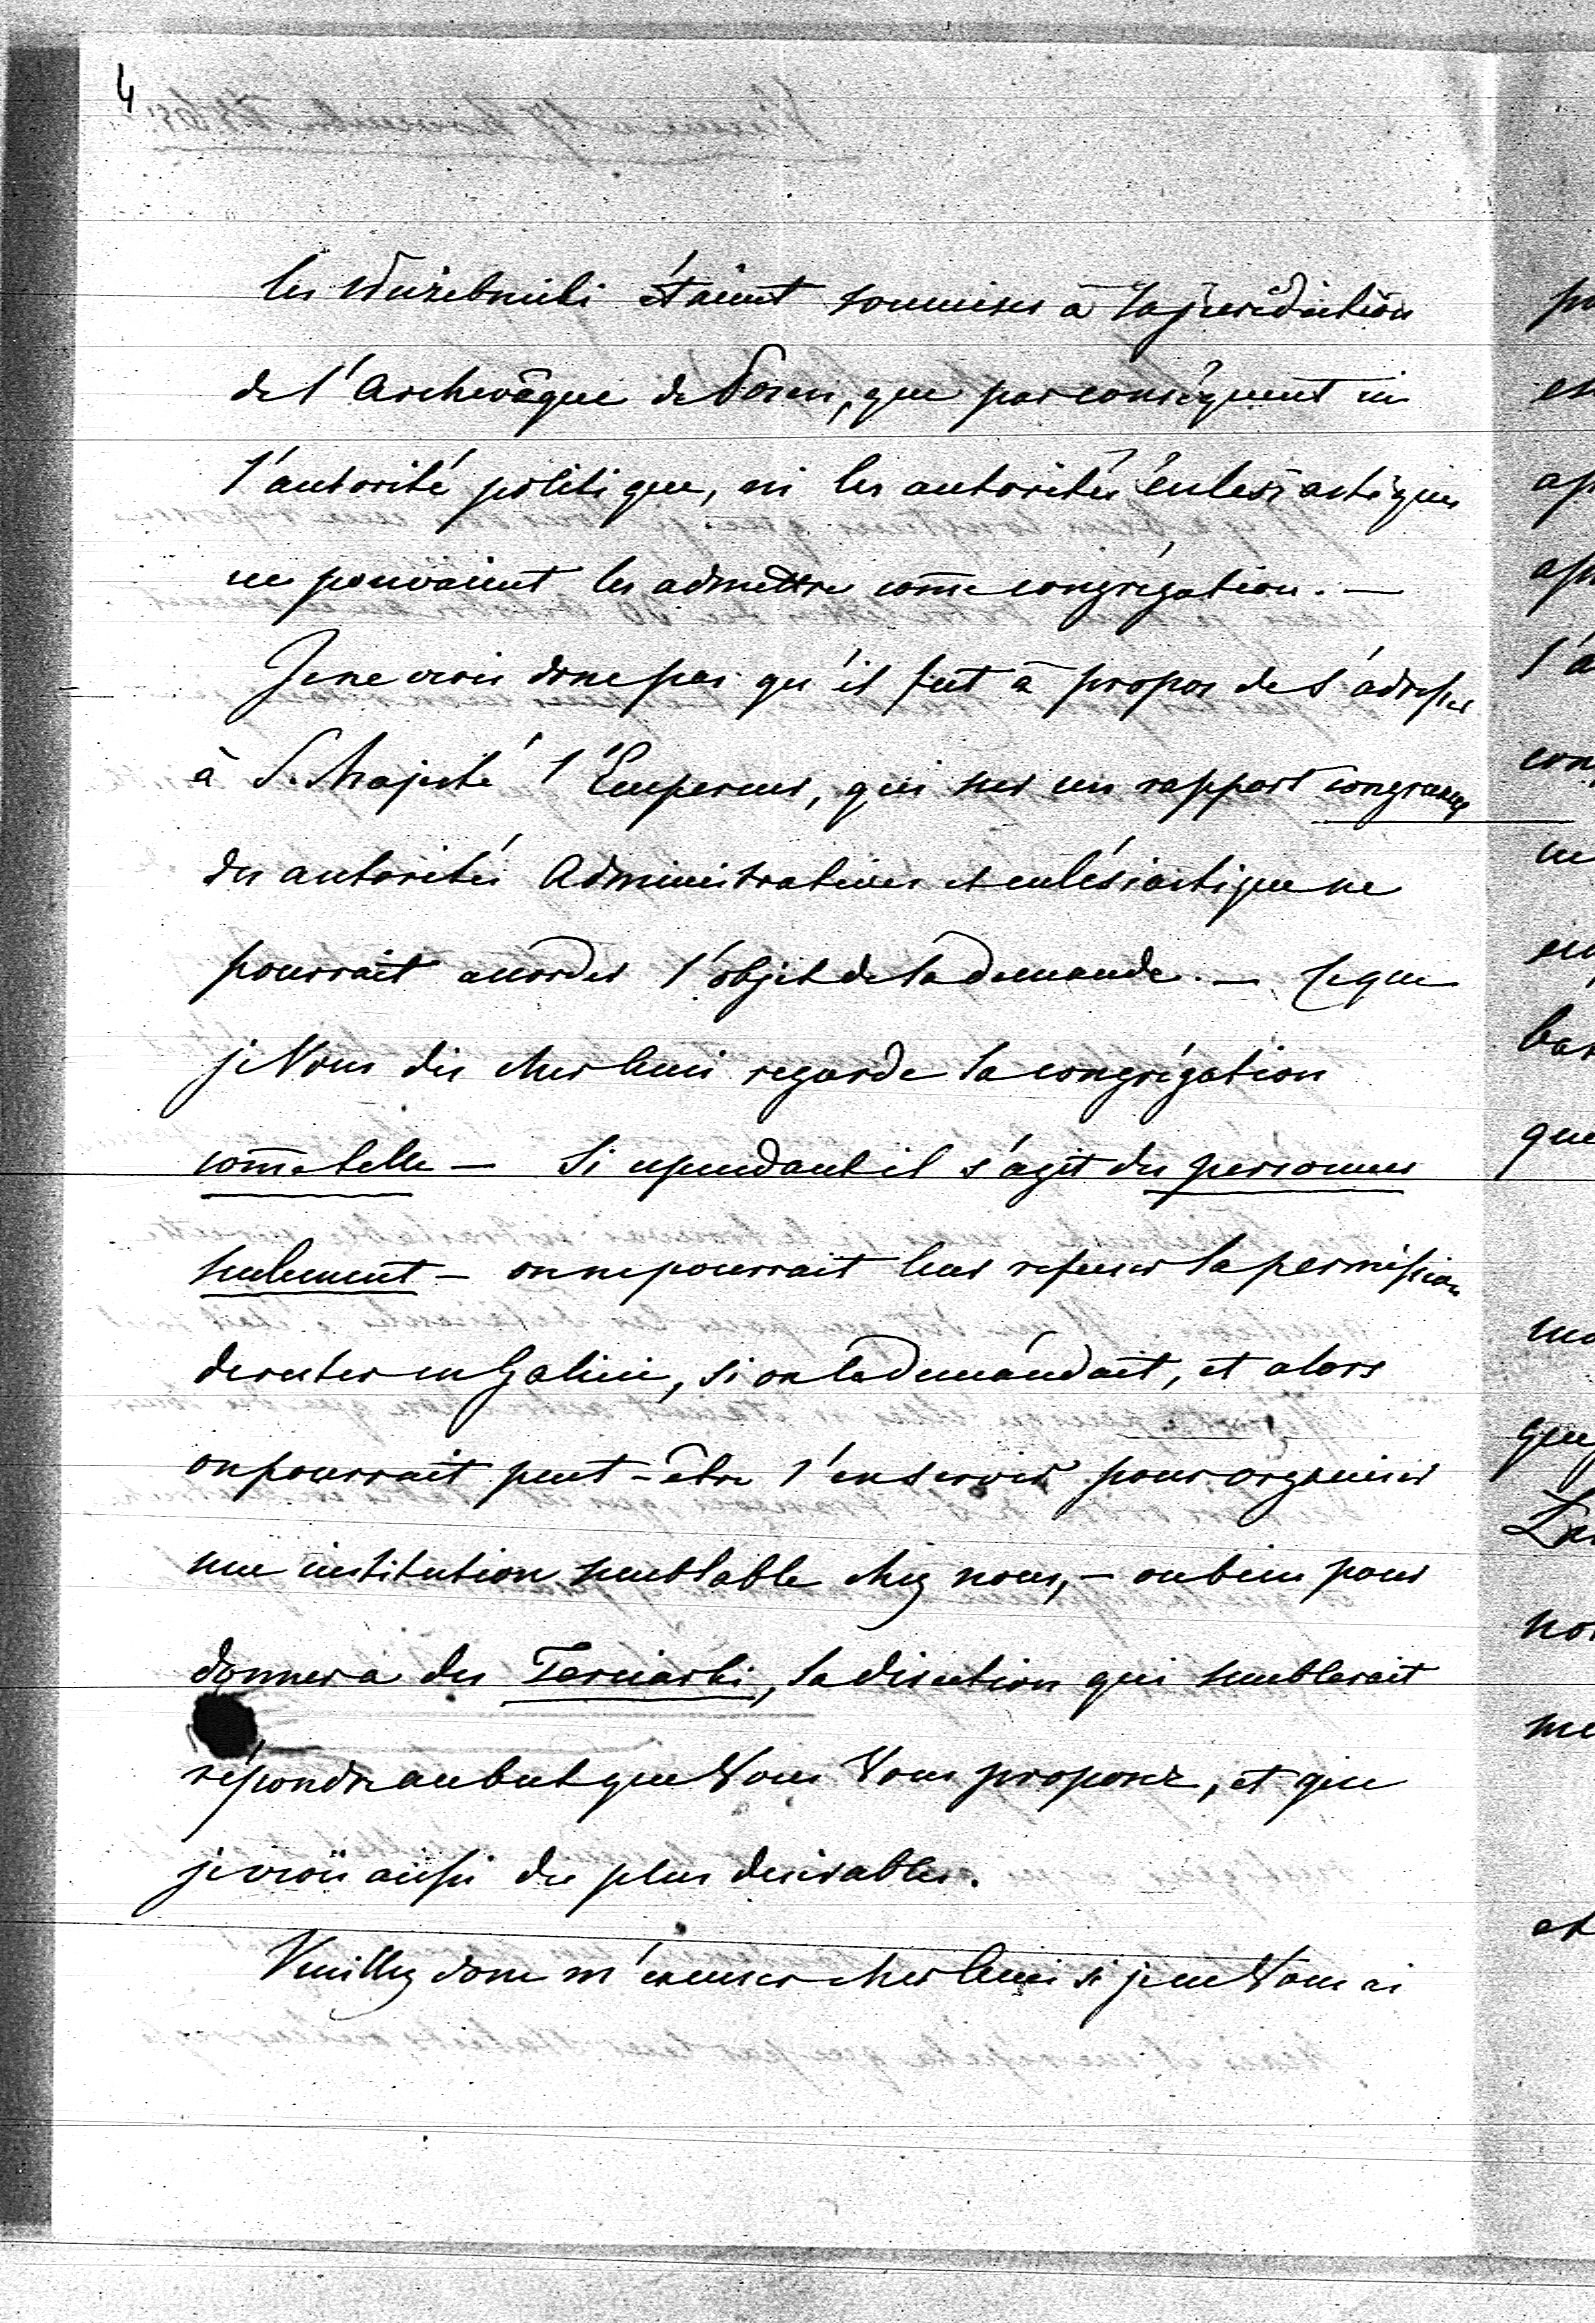 4
les służebniki étaient soumises à la jurisdiction
de l'Archevêque de Posen, que par conséquent ni
l'autorité politique, ni les autorités éclésiastiques
ne pouvaient les admettre com̅e congrégation. —
Je ne crois donc pas qu'il fut à propos de s'adresser
à S. Majesté l'Empereur, qui sur un rapport
des autorités Administratives et eclésiastique ne
pourrait accorder l'objet de la demande. — Ce que
je Vous dis cher Ami regarde la congrégation
com̅e telle — Si cependant il s'agit des personnes
seulement — on ne pourrait leur refuser la permission
de rester en Galicie, si on la demandait, et alors
on pourrait peut-être s'en servir pour organiser
une institution semblable chez nous, — ou bien pour
donner a des Terciarki, la direction qui semblerait
répondre au but que Vous Vous proposez, et que
je crois aussi des plus desirables.
Veuillez donc m'excuser cher Ami si je ne Vous ai